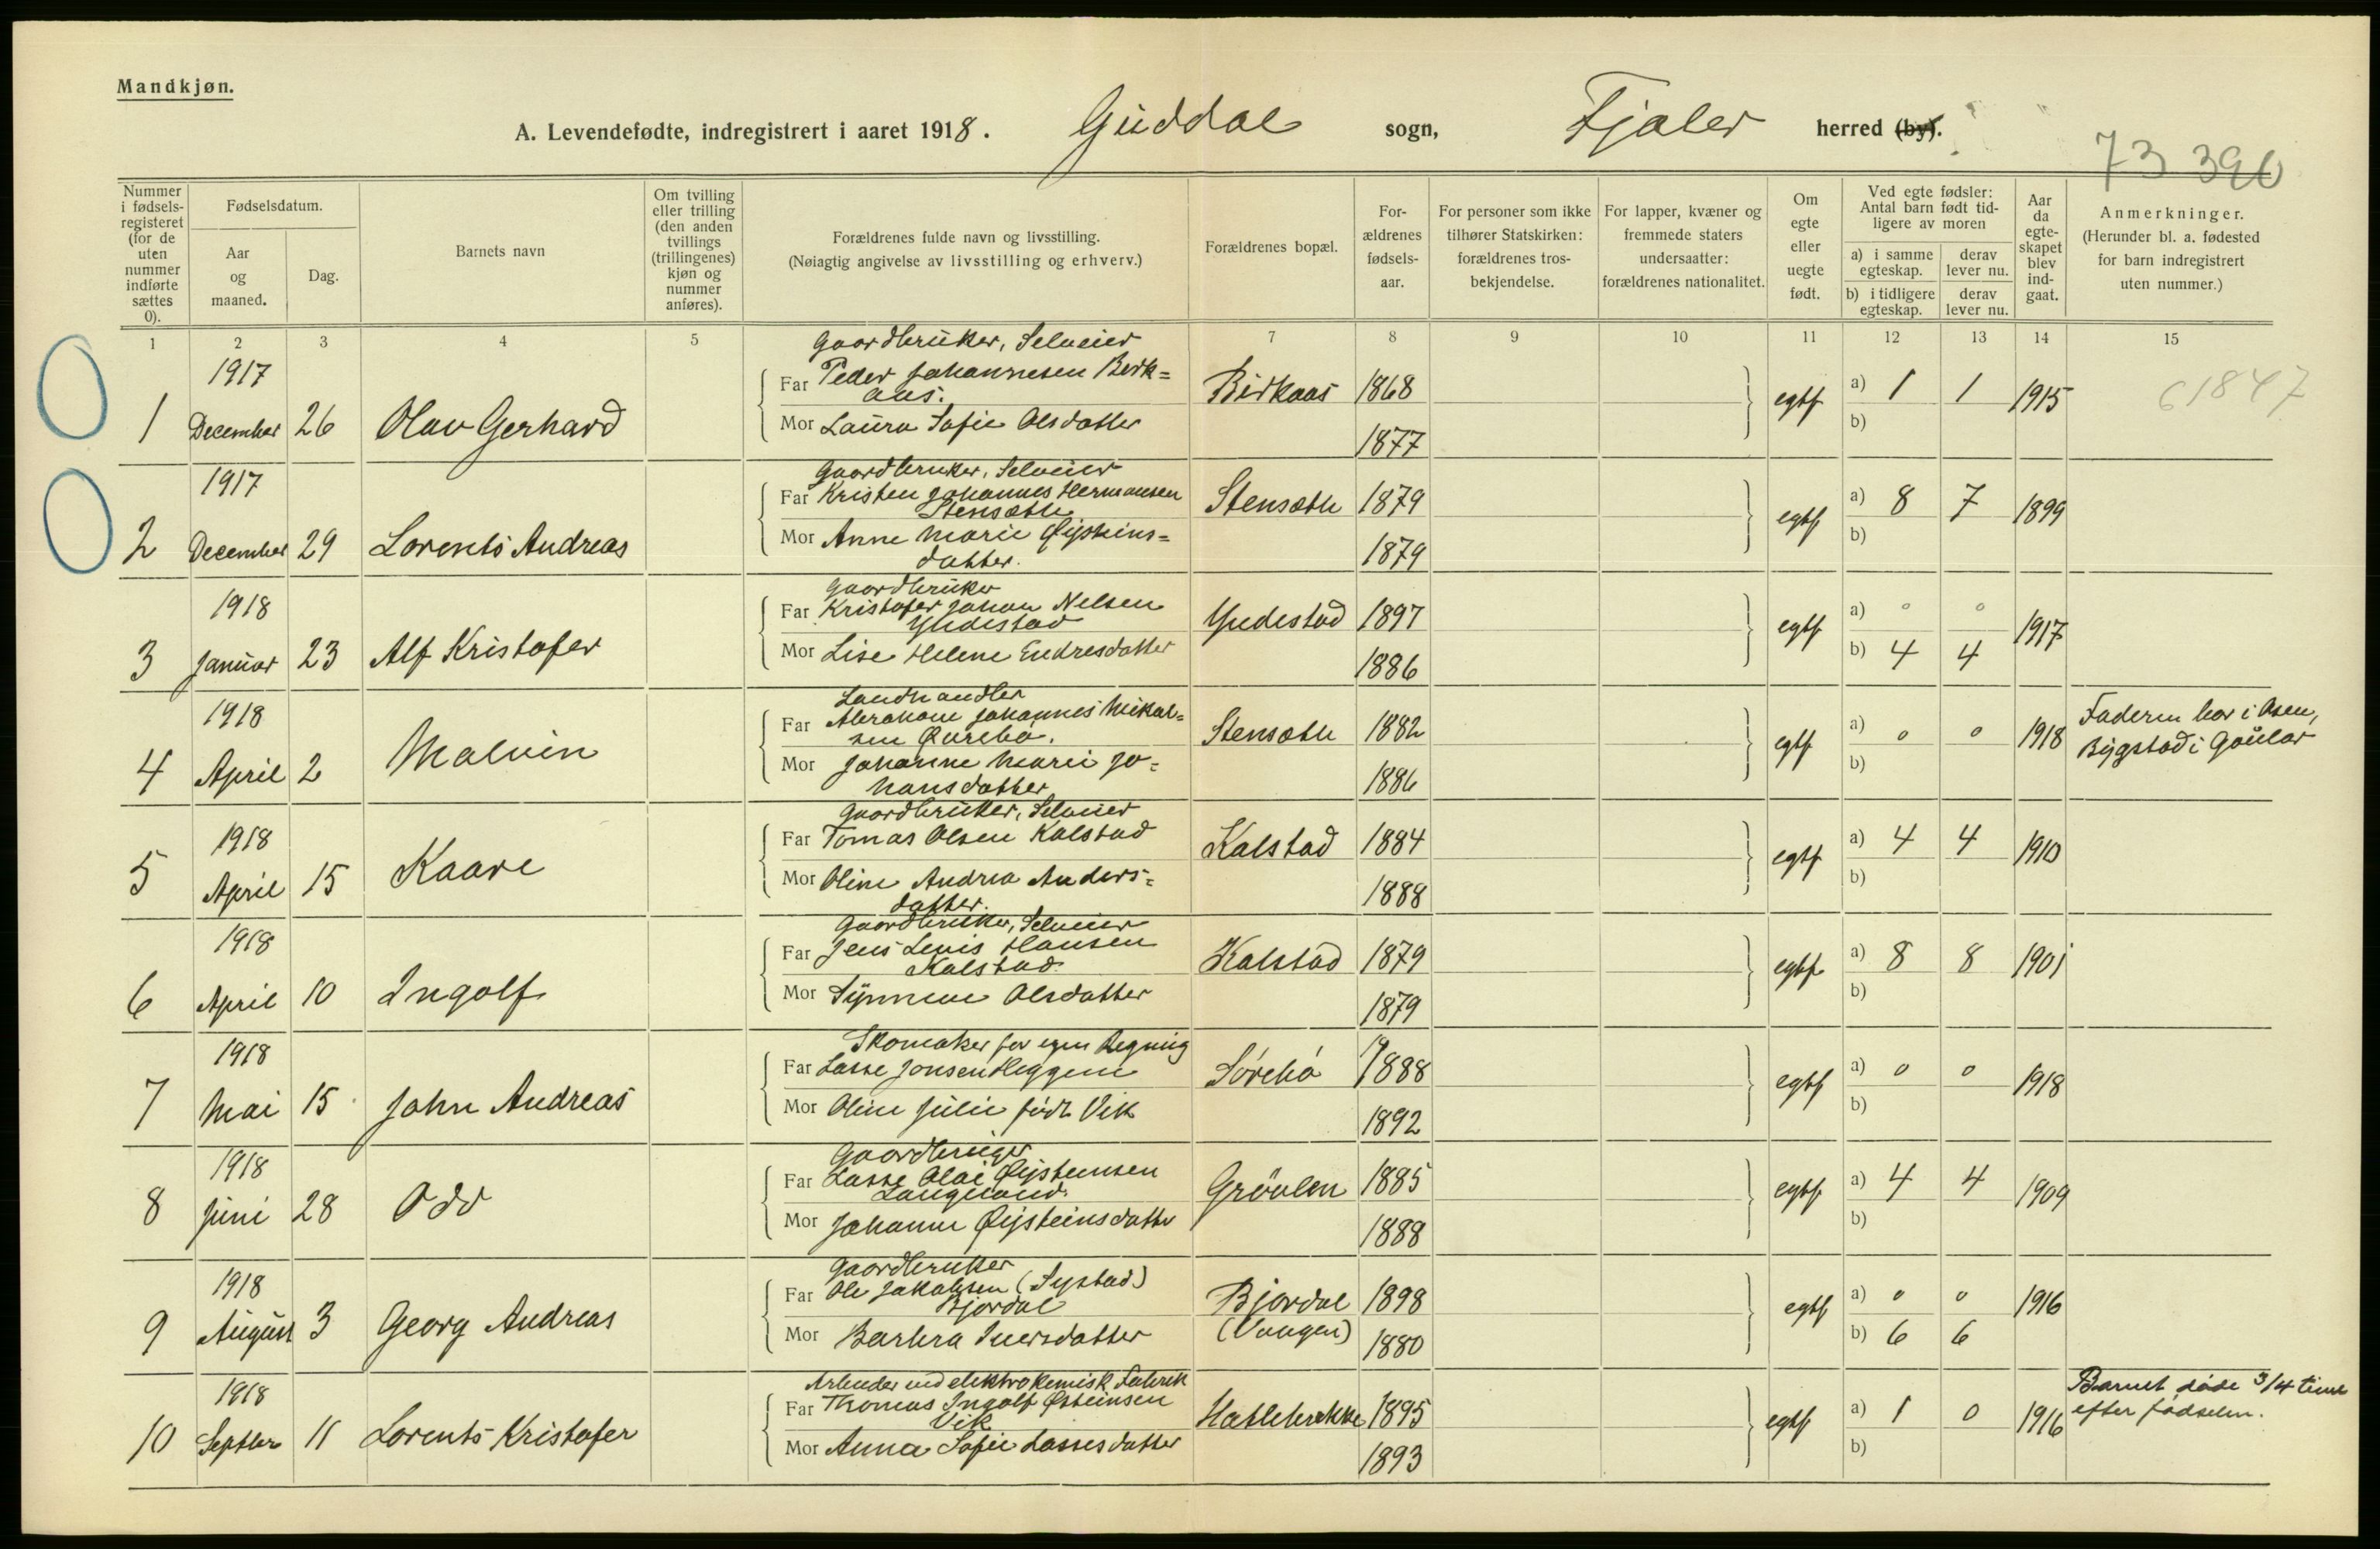 Mandkjøn.
A. Levendefødte, indregistrert i aaret 1918. Guddal sogn, Fjaler herred (by).
73 390
Nummer i fødsels-registeret (for de uten nummer indførte sættes 0).
Fødselsdatum.
Aar og maaned.
Dag.
Barnets navn
Om tvilling eller trilling (den anden tvillings (trillingenes) kjøn og nummer anføres).
Forældrenes fulde navn og livsstilling.
(Nøiagtig angivelse av livsstilling og erhverv.)
Forældrenes bopæl.
For-ældrenes fødsels-aar.
For personer som ikke tilhører Statskirken: forældrenes tros-bekjendelse.
For lapper, kvæner og fremmede staters undersaatter: forældrenes nationalitet.
Om egte eller uegte født.
Ved egte fødsler: Antal barn født tid-ligere av moren
a) i samme egteskap. derav lever nu.
b) i tidligere egteskap. derav lever nu.
Aar da egte-skapet blev ind-gaat.
Anmerkninger.
(Herunder bl. a. fødested for barn indregistrert uten nummer.)
1 2 3 4 5 7 8 9 10 11 12 13 14 15
Gaardbruker, Selveier
1917 Far Peder Johannesen Birk=
aas. Birkaas 1868 egtf a) 1 1 1915 61847
1 December 26 Olav Gerhard Mor Laura Sofie Olsdatter b)
1877
Gaardbruker, Selveier
1917 Far Kristen Johannes Hermansen
Stensæth Stensæth 1879 egtf a) 8 7 1899
2 December 29 Lorents Andreas Mor Anne Marie Øisteins=
datter. 1879 b)
Gaardbruker
1918 Far Kristofer Johan Nelsen
Yndestad Yndestad 1897 egtf a) 0 0 1917
3 Januar 23 Alf Kristofer Mor Lise Helene Endresdatter b) 4 4
1886
Landhandler
1918 Far Abraham Johannes Mikal=
sen Øvrebø. Stensæth 1882 egtf a) 0 0 1918 Faderen bor i Osen,
Bygstad i Gaular
4 April 2 Malvin Mor Johanne Marie Jo=
hansdatter 1886 b)
Gaardbruker, Selveier
1918 Far Tomas Olsen Kalstad Kalstad 1884 egtf a) 4 4 1910
5 April 15 Kaare Mor Oline Andrea Anders=
datter. 1888 b)
Gaardbruker, Selveier
1918 Far Jens Lewis Hansen
Kalstad Kalstad 1879 egtf a) 8 8 1901
6 April 10 Ingolf Mor Synneve Olsdatter 1879 b)
Skomaker for egen Regning
1918 Far Lasse Jonsen Heggem Sørebø 1888 egtf a) 0 0 1918
7 Mai 15 John Andreas Mor Oline Julie født Vik 1892 b)
Gaardbruger
1918 Far Lasse Olai Øisteinsen
Langeland Grøulen 1885 egtf a) 4 4 1909
8 Juni 28 Odd Mor Johanne Øisteinsdatter 1888 b)
Gaardbruker
1918 Far Ole Jakobsen (Systad)
Bjordal Bjordal 1898 egtf a) 0 0 1916
9 August 3 Georg Andreas Mor Barbra Iversdatter (Vaagen) 1880 b) 6 6
Arbeider ved elektrokemisk Fabrik
1918 Far Thomas Ingolf Østeinsen
Vik Hatlebrekke 1895 egtf a) 1 0 1916 Barnet døde 3/4 time
efter fødselen.
10 Septbr 11 Lorents Kristofer Mor Anna Sofie Lassesdatter 1893 b)